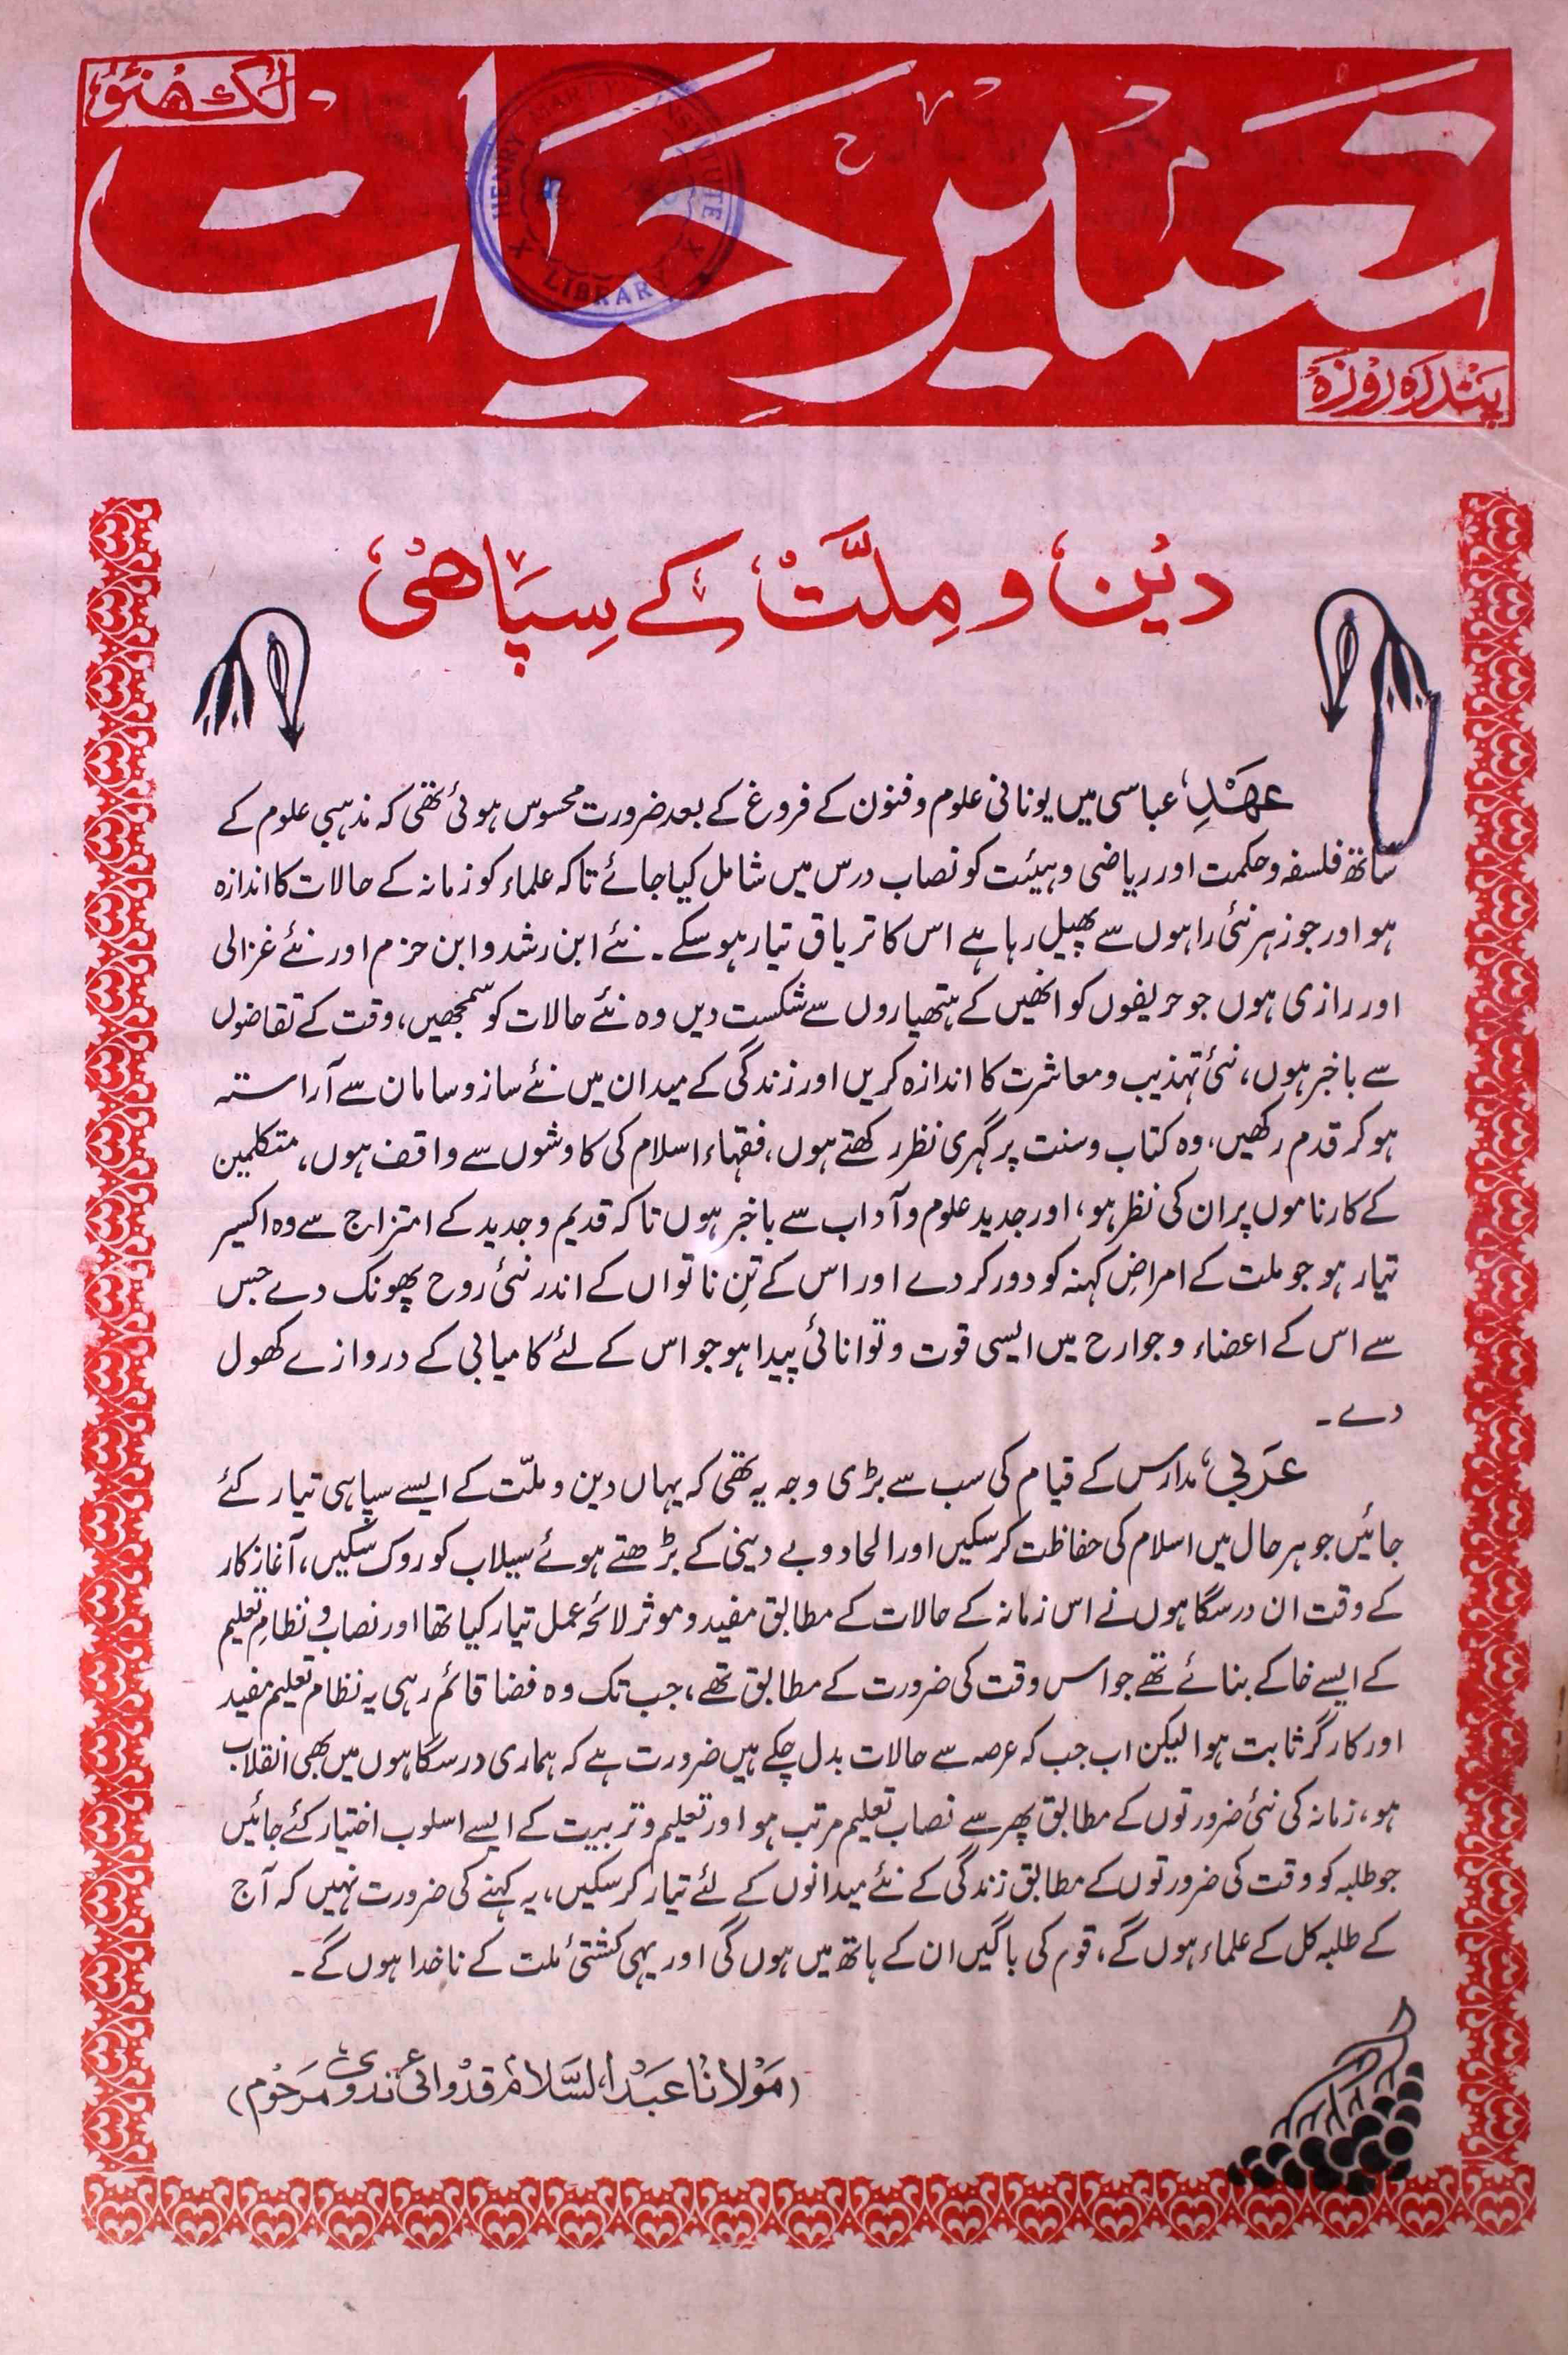 لکھنؤ
تعمیر حیات
پندرہ روزہ
HENRY MARTYN INSTITUTE
LIBRARY
دین و ملّت کے سپاھی
عھدِ عباسی میں یونانی علوم و فنون کے فروغ کے بعد ضرورت محسوس ہوئی تھی کہ مذہبی علوم کے
ساتھ فلسفہ و حکمت اور ریاضی و ہیئت کو نصاب درس میں شامل کیا جائے تاکہ علماء کو زمانہ کے حالات کا اندازہ
ہو اور جو زہر نئی راہوں سے پھیل رہا ہے اس کا تریاق تیار ہو سکے۔ نئے ابن رشد و ابن حزم اور نئے غزالی
اور رازی ہوں جو حریفوں کو انھیں کے ہتھیاروں سے شکست دیں وہ نئے حالات کو سمجھیں، وقت کے تقاضوں
سے باخبر ہوں، نئی تہذیب و معاشرت کا اندازہ کریں اور زندگی کے میدان میں نئے ساز و سامان سے آراستہ
ہو کر قدم رکھیں، وہ کتاب و سنت پر گہری نظر رکھتے ہوں، فقہاء اسلام کی کاوشوں سے واقف ہوں، متکلمین
کے کارناموں پر ان کی نظر ہو، اور جدید علوم و آداب سے باخبر ہوں تاکہ قدیم و جدید کے امتزاج سے وہ اکسیر
تیار ہو جو ملت کے امراضِ کہنہ کو دور کر دے اور اس کے تنِ ناتواں کے اندر نئی روح پھونک دے جس
سے اس کے اعضاء و جوارح میں ایسی قوت و توانائی پیدا ہو جو اس کے لئے کامیابی کے دروازے کھول
دے۔
عربی مدارس کے قیام کی سب سے بڑی وجہ یہ تھی کہ یہاں دین و ملّت کے ایسے سپاہی تیار کئے
جائیں جو ہر حال میں اسلام کی حفاظت کر سکیں اور الحاد و بے دینی کے بڑھتے ہوئے سیلاب کو روک سکیں، آغاز کار
کے وقت ان درسگاہوں نے اس زمانہ کے حالات کے مطابق مفید و موثر لائحہ عمل تیار کیا تھا اور نصاب و نظامِ تعلیم
کے ایسے خاکے بنائے تھے جو اس وقت کی ضرورت کے مطابق تھے، جب تک وہ فضا قائم رہی یہ نظام تعلیم مفید
اور کارگر ثابت ہوا لیکن اب جب کہ عرصہ سے حالات بدل چکے ہیں ضرورت ہے کہ ہماری درسگاہوں میں بھی انقلاب
ہو، زمانہ کی نئی ضرورتوں کے مطابق پھر سے نصاب تعلیم مرتب ہو اور تعلیم و تربیت کے ایسے اسلوب اختیار کئے جائیں
جو طلبہ کو وقت کی ضرورتوں کے مطابق زندگی کے نئے میدانوں کے لئے تیار کر سکیں، یہ کہنے کی ضرورت نہیں کہ آج
کے طلبہ کل کے علماء ہوں گے، قوم کی باگیں ان کے ہاتھ میں ہوں گی اور یہی کشتیٔ ملت کے ناخدا ہوں گے۔
(مولانا عبدالسلام قدوائی ندوی مرحوم)